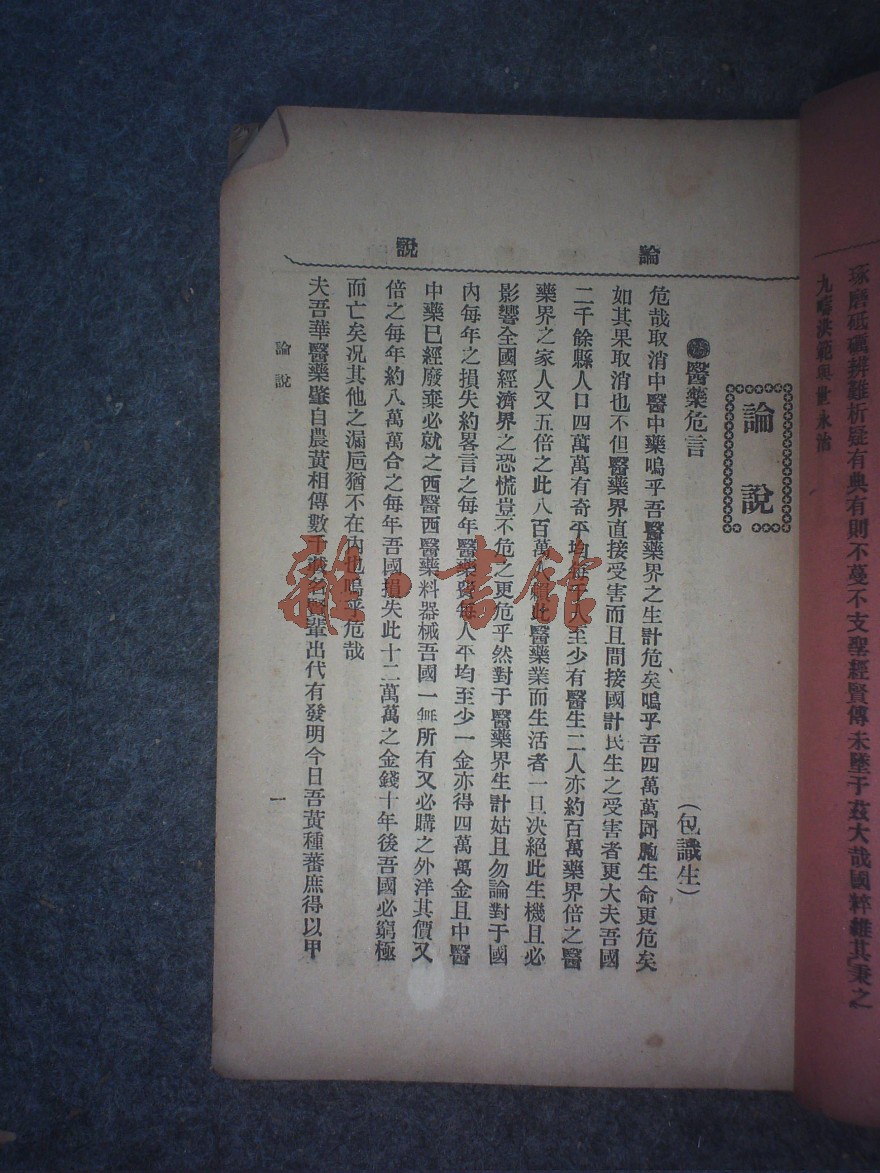 琢磨砥礪辨難析疑有典有則不蔓不支聖經賢傳未墜于茲大哉國粹維其秉之
九疇洪範與世永治
論說
論說
醫藥危言
(包識生)
危哉取消中醫中藥嗚乎吾醫藥界之生計危矣嗚乎吾四萬萬同胞生命更危矣
如其果取消也不但醫藥界直接受害而且間接國計民生之受害者更大夫吾國
二千餘縣人口四萬萬有奇平均每千人至少有醫生二人亦約百萬藥界倍之醫
藥界之家人又五倍之此八百萬人賴此醫藥業而生活者一旦决絕此生機且必
影響全國經濟界之恐慌豈不危之更危乎然對于醫藥界生計姑且勿論對于國
內每年之損失約畧言之每年醫藥費每人平均至少一金亦得四萬萬金且中醫
中藥已經廢棄必就之西醫西醫藥料器械吾國一無所有又必購之外洋其價又
倍之每年約八萬萬合之每年吾國損失此十二萬萬之金錢十年後吾國必窮極
而亡矣况其他之漏巵猶不在內也嗚乎危哉
夫吾華醫藥肇自農黃相傳數千載名賢輩出代有發明今日吾黃種蕃庶得以甲
論說
一
雜·書館